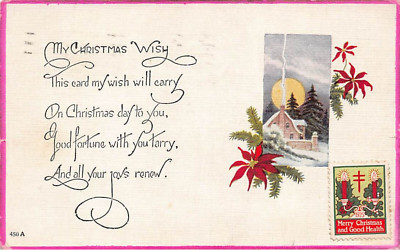 My Christmas Wish
This card my wish will carry
On Christmas day to you,
Good fortune with you tarry,
And all your joys renew.
450 A
Merry Christmas
and Good Health